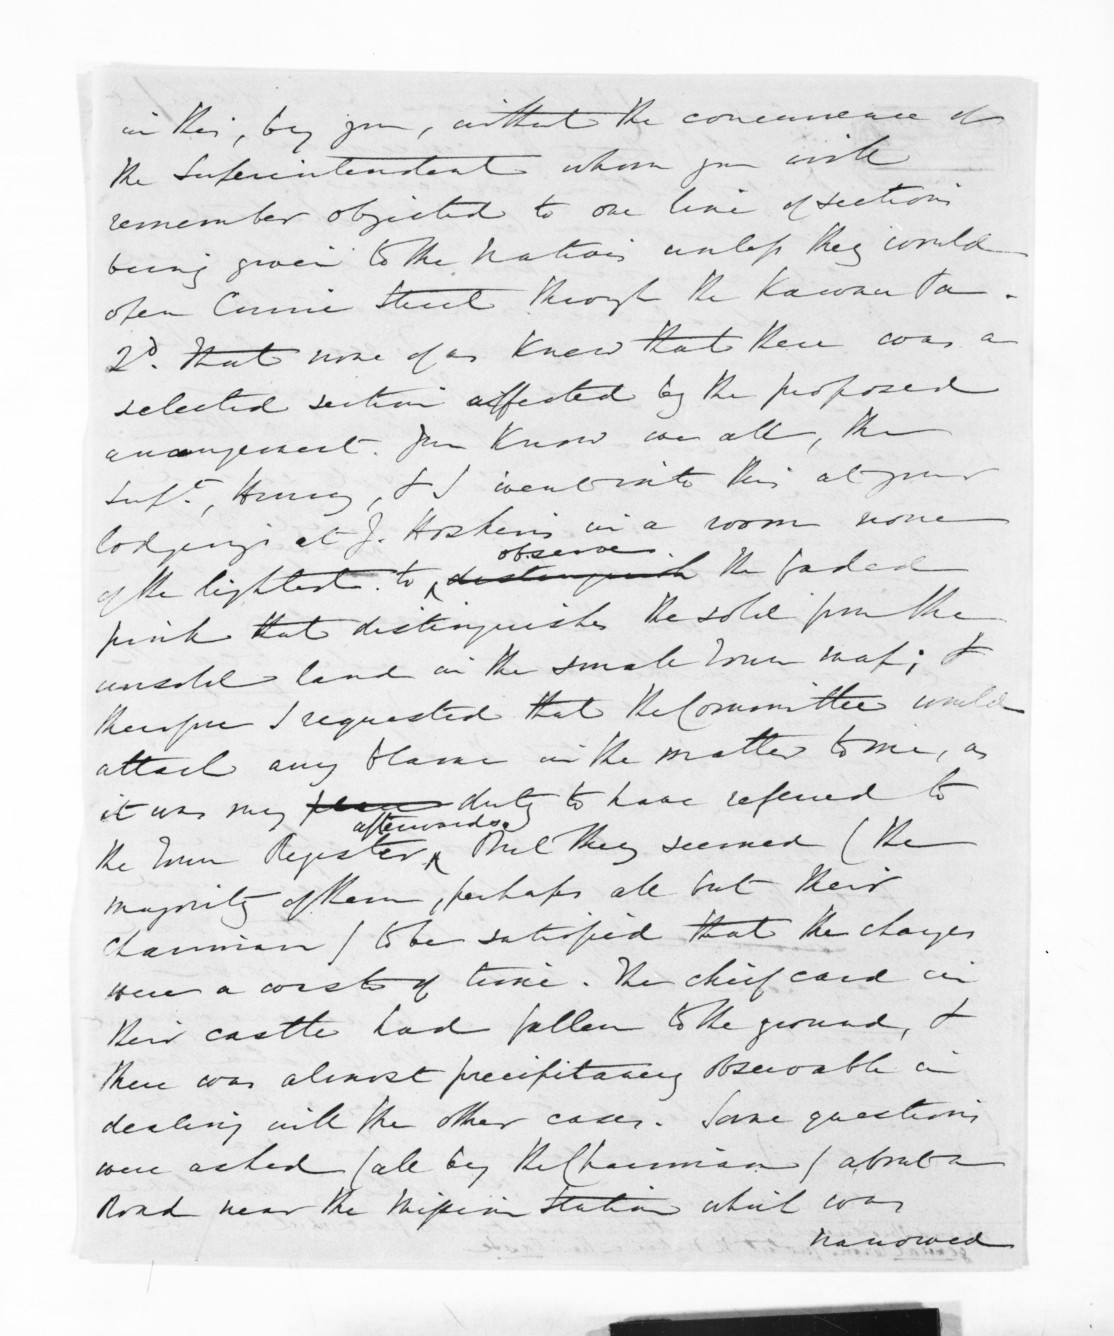 in this, by you, without the concurrence of
the Superintendent whom you will
remember objected to one line of sections
being given to the Natives unless they would
open Currie Street through the Kawau Pa.
2d. That none of us knew that there was a
selected section affected by the proposed
arrangement. You know we all, the
Supt., Henry, & I went into this at your
lodgings at J. Hoskin's in a room none
of the lightest to distinguish observe the faded
pink that distinguishes the sold from the
unsold land in the small Town map; &
therefore I requested that the Committee would
attach any blame in the matter to me, as
it was my duty to have referred to
the Town Register afterwards. But they seemed (the
majority of them, perhaps all but their
chairman) to be satisfied that the charges
were a waste of time. The chief card in
their castle had fallen to the ground, &
there was almost precipitancy observable in
dealing with the other cases. Some questions
were asked (all by the Chairman) about a
Road near the Mission Station which was
narrowed